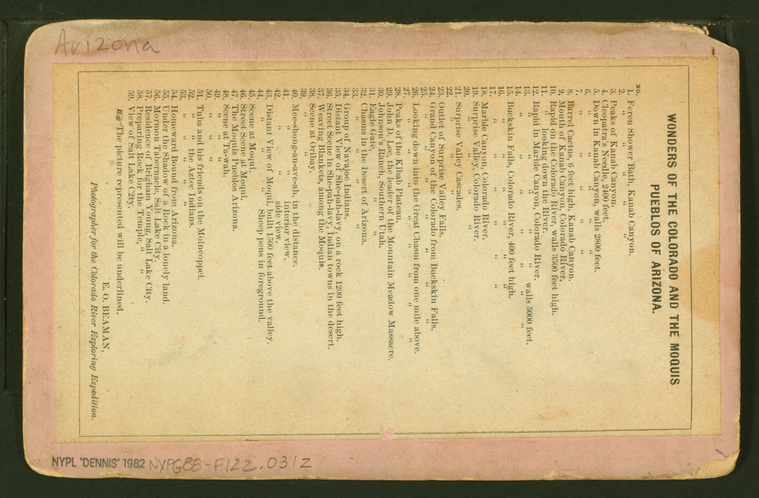 Arizona
WONDERS OF THE COLORADO AND THE MOQUIS
PUEBLOS OF ARIZONA.
NO.
1. Fern Shower Bath, Kanab Canyon.
2. " " " "
3. Peaks of Kanab Canyon.
4. Cleopatra's Needle, 2400 feet.
5. Down in Kanab Canyon, walls 2800 feet.
6. " " " "
7. " " " "
8. Barrel Cactus, 6 feet high, Kanab Canyon.
9. Mouth of Kanab Canyon, Colorado River.
10. Rapid on the Colorado River, walls 3500 feet high.
11. " looking down the River.
12. Rapid in Marble Canyon, Colorado River.
13. " " " " walls 5000 feet.
14. " " " "
15. Buckskin Falls, Colorado River, 400 feet high.
16. " " " "
17. " " " "
18. Marble Canyon, Colorado River.
19. Surprise Valley, Colorado River.
20. " " "
21. Surprise Valley Cascades.
22. " " "
23. Outlet of Surprise Valley Falls.
24. Grand Canyon of the Colorado from Buckskin Falls.
25. " " " "
26. Looking down into the Great Chasm from one mile above.
27. " " " "
28. Peaks of the Kibab Plateau.
29. John D. Lee, the leader of the Mountain Meadow Massacre.
30. Johnson's Ranch, Southern Utah.
31. Eagle Gate, " "
32. Chasms in the Desert of Arizona.
33. " " "
34. Group of Navajoe Indians.
35. Distant View of She-pah-lavy, on a rock 1200 feet high.
36. Street Scene in She-pah-lavy, Indian towns in the desert.
37. Weaving Blankets, among the Moquis.
38. Scene at Oribay.
39. " "
40. Mee-shong-an-ave-ah, in the distance.
41. " interior view.
42. " side view.
43. Distant View of Moqui, built 1500 feet above the valley.
44. " " Sheep pens in foreground.
45. Scene at Moqui.
46. Street Scene at Moqui.
47. The Moquis Pueblos Arizona.
48. Scene at Ta-wah.
49. " "
50. " "
51. Tuba and his friends on the Moincoppel.
52. " " the Aztec Indians.
53. " " "
54. Homeward Bound from Arizona.
55. Under the Shadow of a Rock in a lonely land.
56. Mormon Tabernacle, Salt Lake City.
57. Residence of Brigham Young, Salt Lake City.
58. Preparing Rock for the Temple, " "
59. View of Salt Lake City.
The picture represented will be underlined.
E. O. BEAMAN,
Photographer for the Colorado River Exploring Expedition.
NYPL 'DENNIS' 1982 NYPG88-F122.031Z